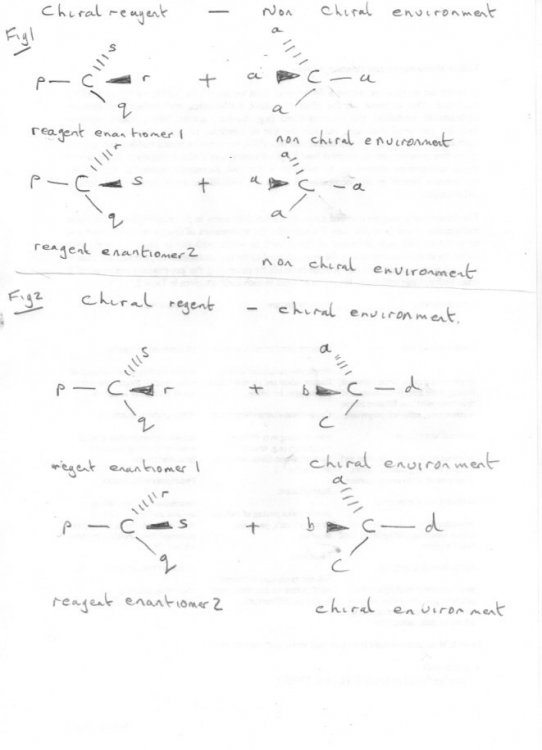 Chiral reagent — Non Chiral environment
Fig1
a
s
p — C r + a C — a
q a
reagent enantiomer 1 non chiral environment
r a
p — C s + a C — a
q a
reagent enantiomer 2 non chiral environment
Fig2 Chiral regent — chiral environment.
s a
p — C r + b C — d
q c
regent enantiomer 1 chiral environment
r a
p — C s + b C — d
q c
reagent enantiomer 2 chiral environment